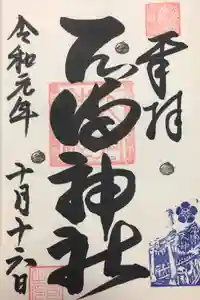 奉拝
石浦神社
令和元年 十月十六日